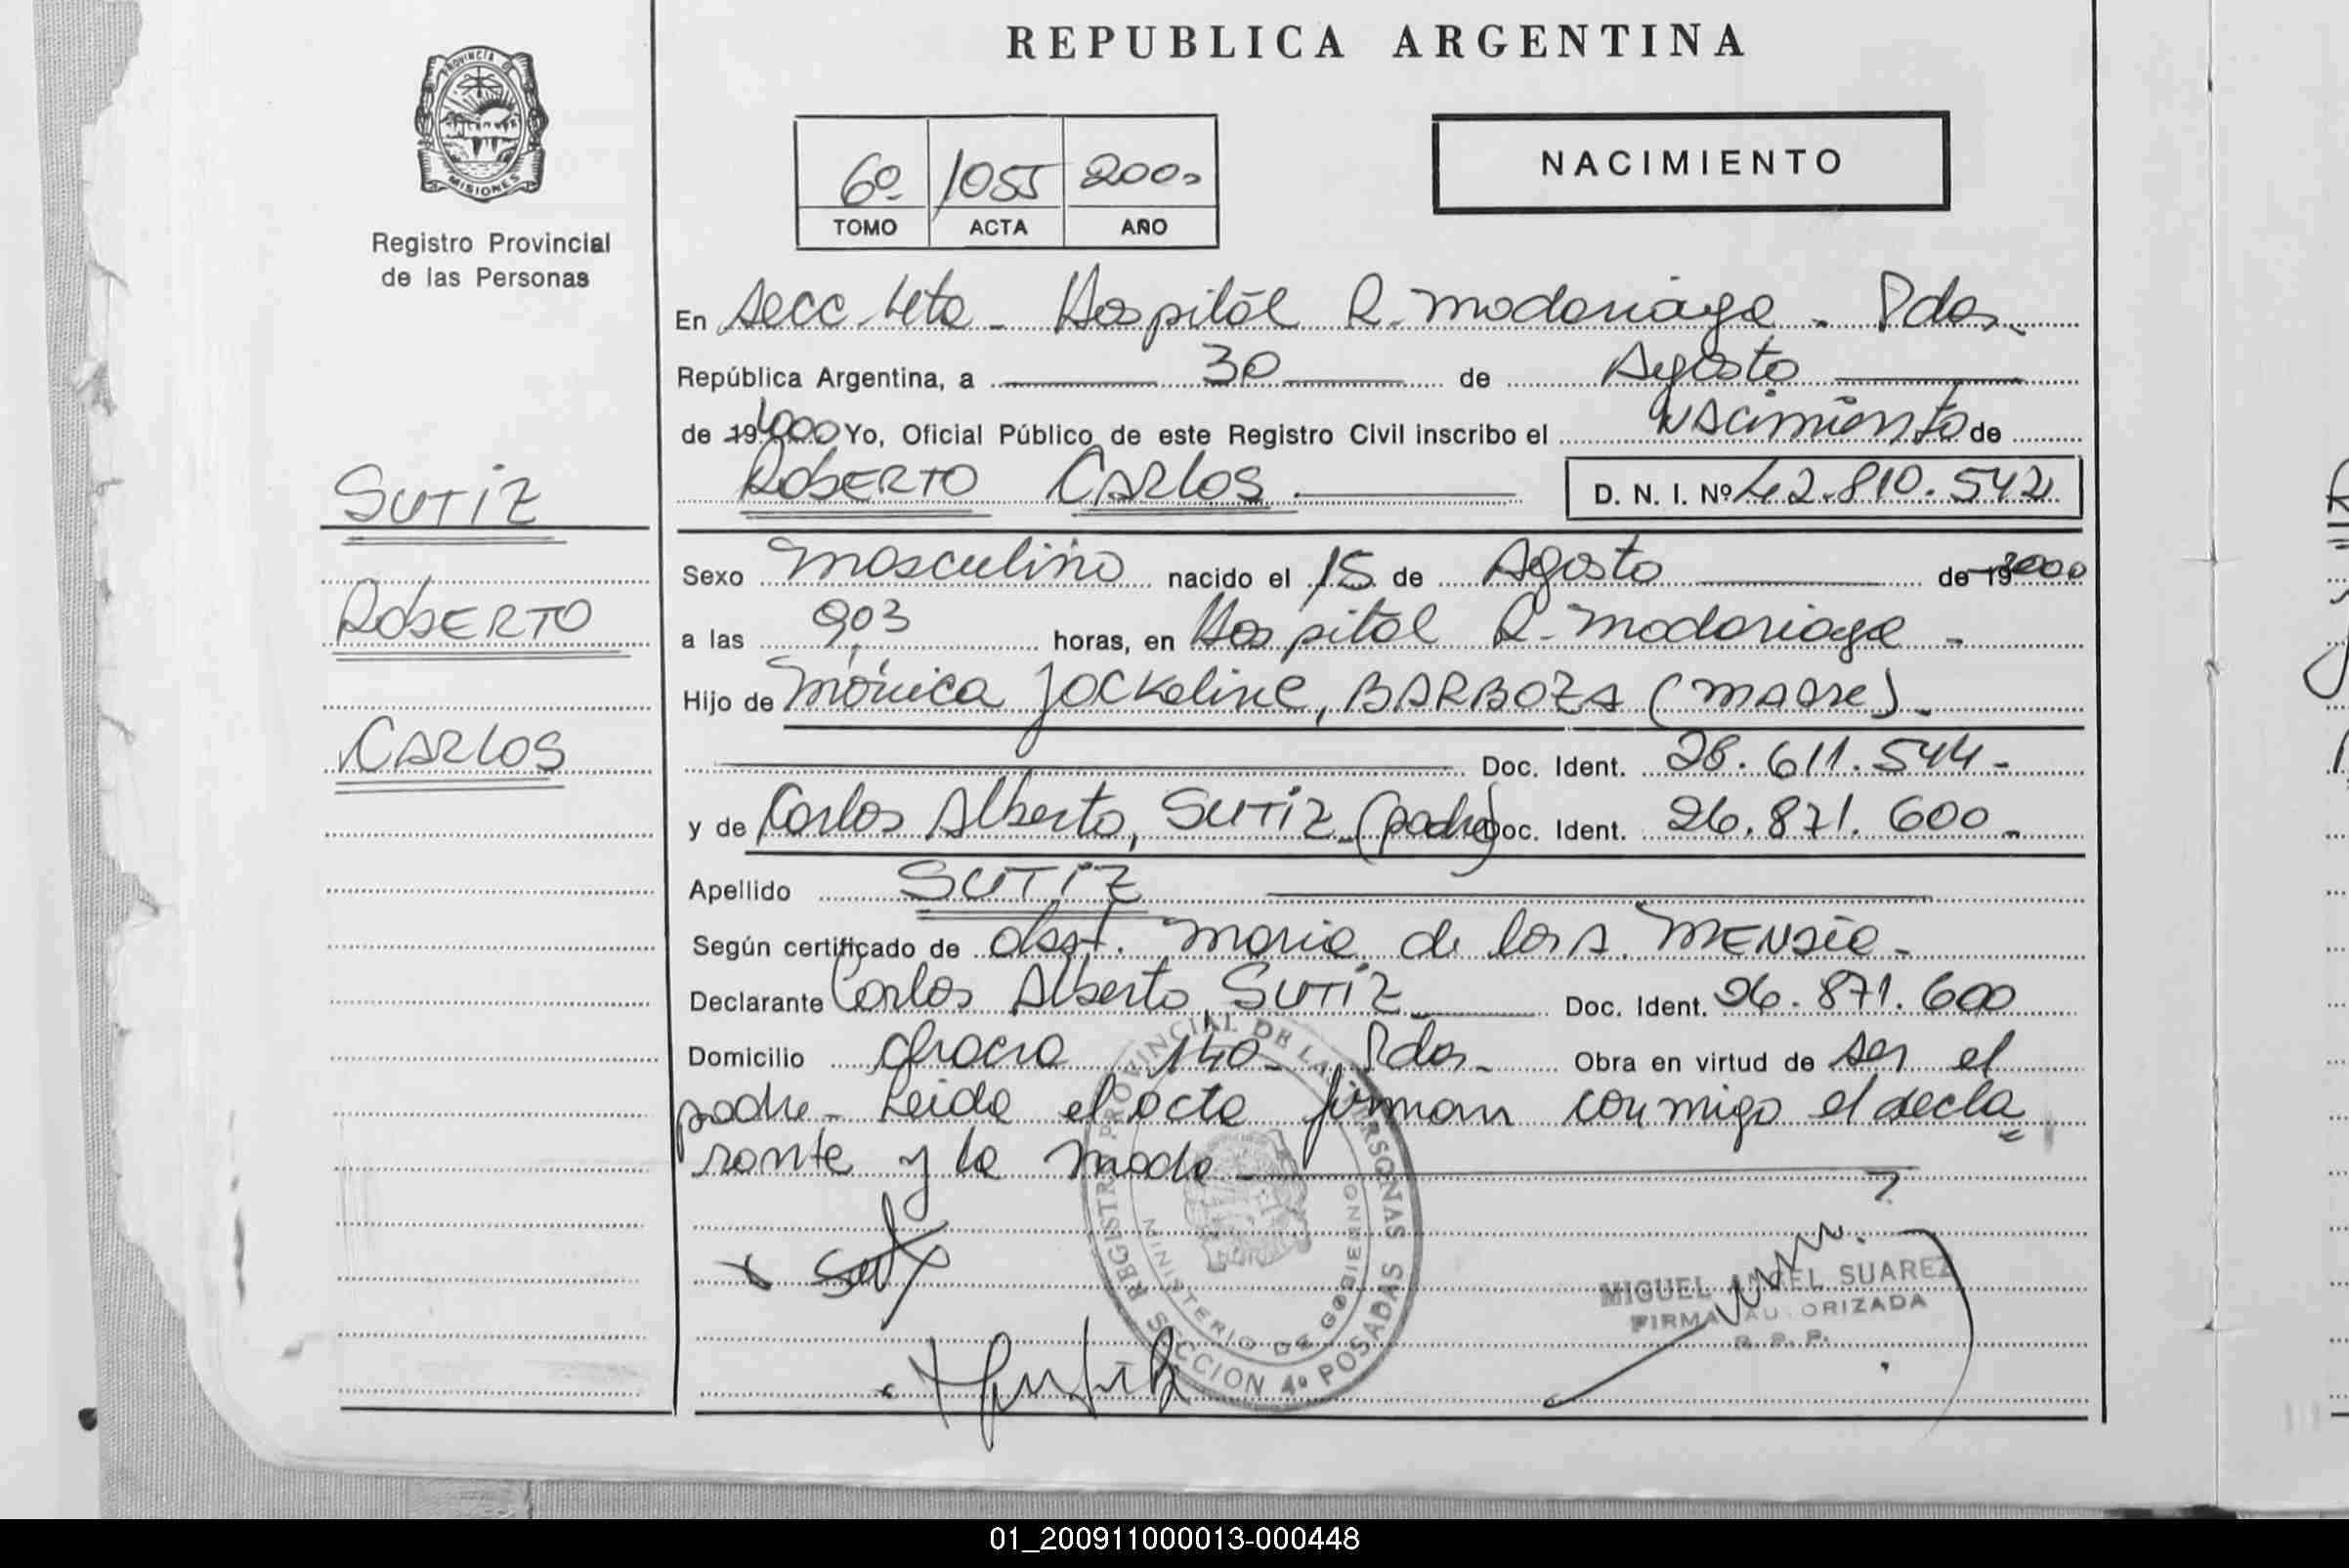 REPUBLICA ARGENTINA
PROVINCIA DE
MISIONES
Registro Provincial
de las Personas
6º 1055 2000
TOMO ACTA AÑO
NACIMIENTO
En Secc 4ta - Hospital R. Madariaga - Pdas.
República Argentina, a 30 de Agosto
de 19 2000 Yo, Oficial Público de este Registro Civil inscribo el Nacimiento de
ROBERTO CARLOS D. N. I. Nº 42.810.542
SUTIZ
ROBERTO
CARLOS
Sexo Masculino nacido el 15 de Agosto de 19 2000
a las 9,03 horas, en Hospital R. Madariaga -
Hijo de Mónica Jackeline, BARBOZA (madre).
Doc. Ident. 28.611.544-
y de Carlos Alberto, SUTIZ (padre) Doc. Ident. 26.871.600-
Apellido SUTIZ
Según certificado de obst. Maria de los A.
Declarante Carlos Alberto, SUTIZ Doc. Ident. 26.871.600
Domicilio chacra 140 - Pdas. Obra en virtud de ser el
padre - Leida el acta firman conmigo el decla
rante y la madre
REGISTRO PROVINCIAL DE LAS PERSONAS
MINISTERIO DE GOBIERNO
SECCION 4º POSADAS
MIGUEL ANGEL SUAREZ
FIRMA AUTORIZADA
R. P. P.
01_200911000013-000448